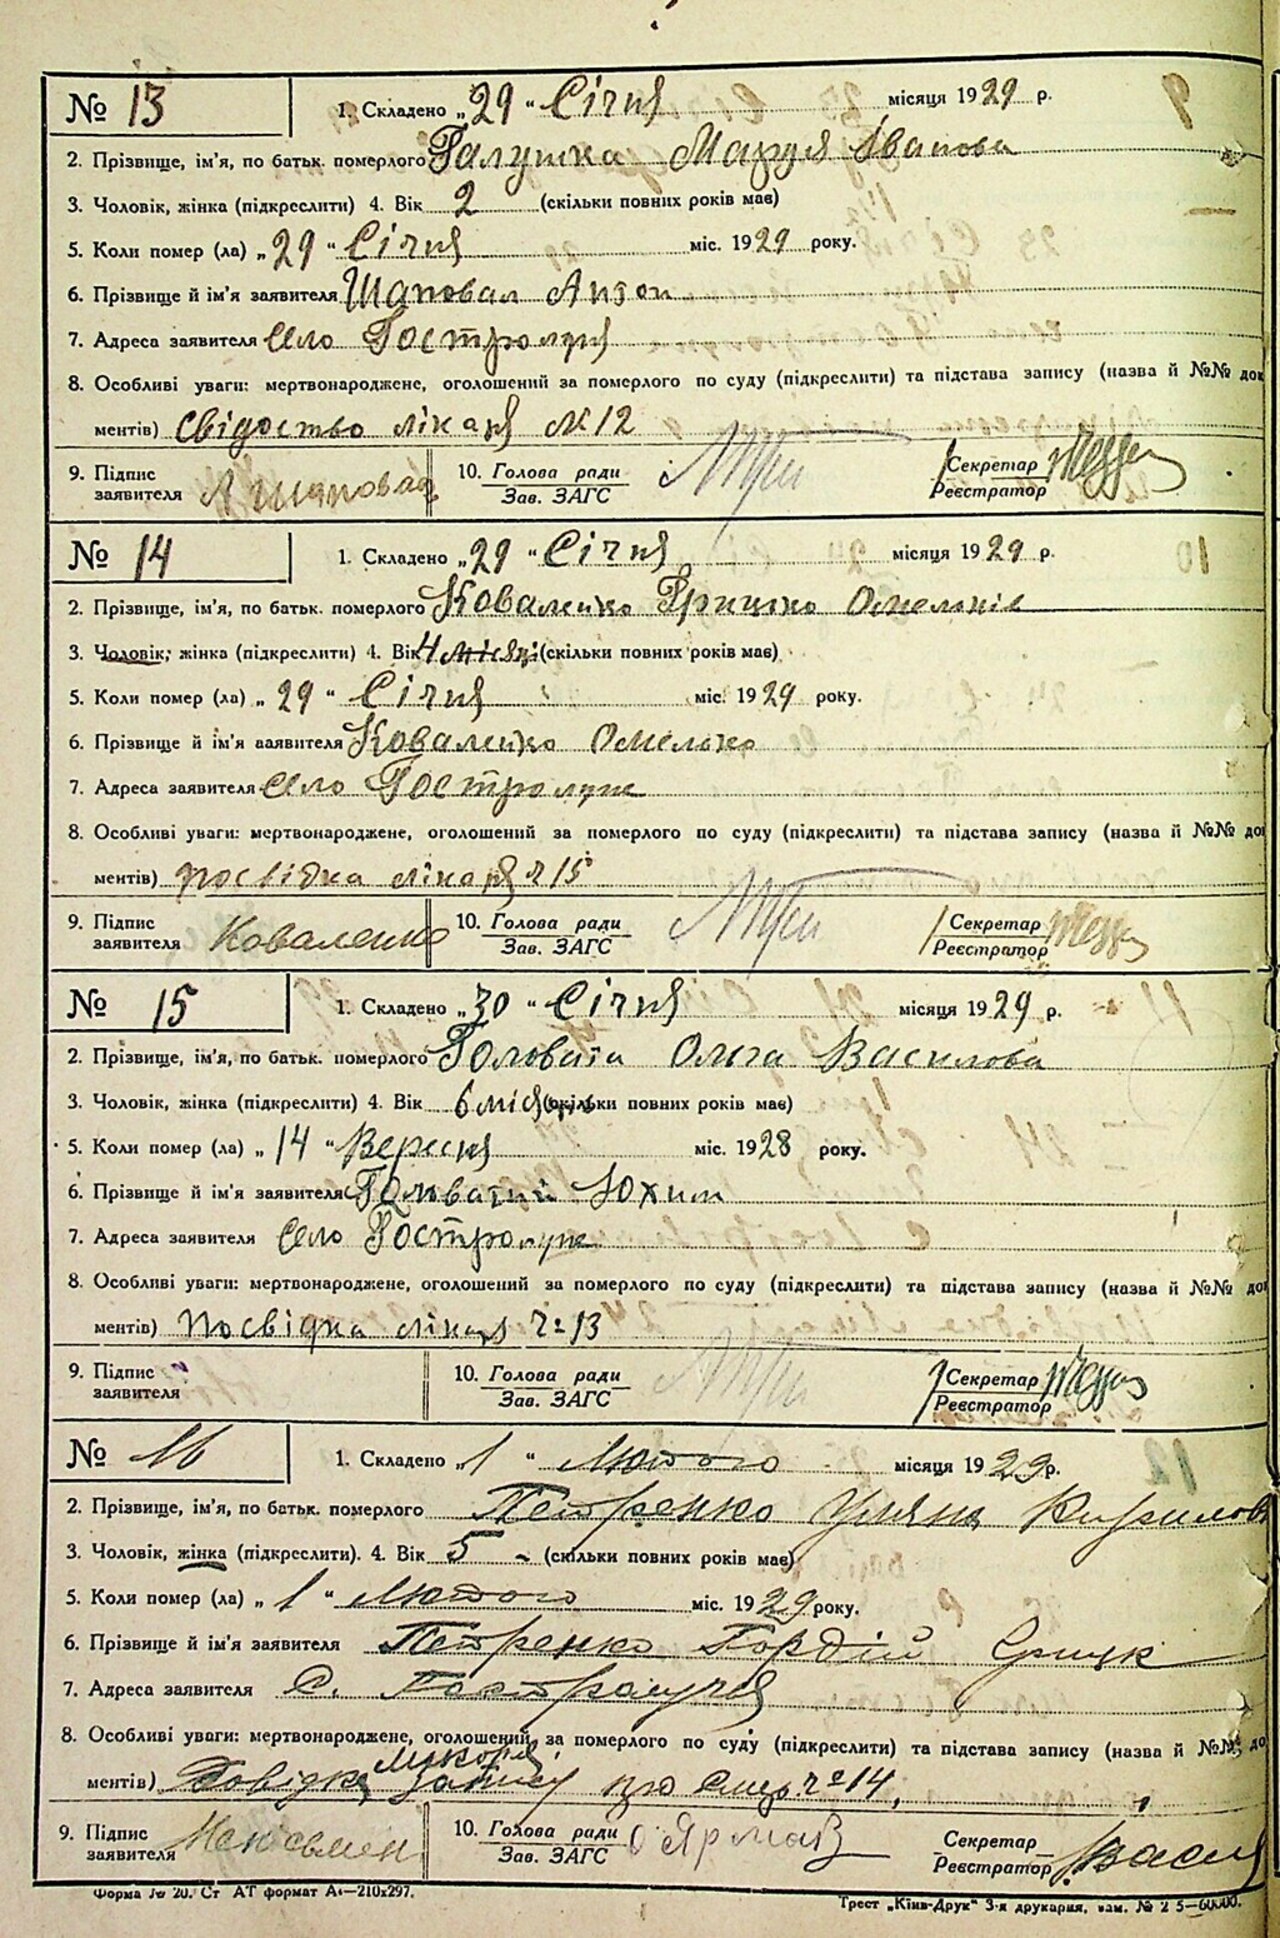 № 13 1. Складено „29“ Січня місяця 1929 р.
2. Прізвище, ім'я, по батьк. померлого Галушка Маруся Іванова
3. Чоловік, жінка (підкреслити) 4. Вік 2 (скільки повних років має)
5. Коли помер (ла) „29“ Січня міс. 1929 року.
6. Прізвище й ім'я заявителя Шаповал Антон
7. Адреса заявителя село Гостролуччя
8. Особливі уваги: мертвонароджене, оголошений за померлого по суду (підкреслити) та підстава запису (назва й №№ доку
ментів) свідоство лікаря № 12
9. Підпис заявителя А Шаповал 10. Голова ради Зав. ЗАГС Секретар Реєстратор
№ 14 1. Складено „29“ Січня місяця 1929 р.
2. Прізвище, ім'я, по батьк. померлого Коваленко Грицько Омельків
3. Чоловік, жінка (підкреслити) 4. Вік 4 місяці (скільки повних років має)
5. Коли помер (ла) „29“ Січня міс. 1929 року.
6. Прізвище й ім'я заявителя Коваленко Омелько
7. Адреса заявителя село Гостролуччя
8. Особливі уваги: мертвонароджене, оголошений за померлого по суду (підкреслити) та підстава запису (назва й №№ доку
ментів) посвідка лікаря ч 15
9. Підпис заявителя Коваленко 10. Голова ради Зав. ЗАГС Секретар Реєстратор
№ 15 1. Складено „30“ Січня місяця 1929 р.
2. Прізвище, ім'я, по батьк. померлого Головата Ольга Василова
3. Чоловік, жінка (підкреслити) 4. Вік 6 місяців (скільки повних років має)
5. Коли помер (ла) „14“ Вересня міс. 1928 року.
6. Прізвище й ім'я заявителя Головатий Юхим
7. Адреса заявителя село Гостролуччя
8. Особливі уваги: мертвонароджене, оголошений за померлого по суду (підкреслити) та підстава запису (назва й №№ доку
ментів) посвідка лікаря ч 13
9. Підпис заявителя 10. Голова ради Зав. ЗАГС Секретар Реєстратор
№ 16 1. Складено „1“ Лютого місяця 1929 р.
2. Прізвище, ім'я, по батьк. померлого Петренко Уляна Кирилова
3. Чоловік, жінка (підкреслити). 4. Вік 5 (скільки повних років має)
5. Коли помер (ла) „1“ Лютого міс. 1929 року.
6. Прізвище й ім'я заявителя Петренко Гордій
7. Адреса заявителя С. Гостролуччя
8. Особливі уваги: мертвонароджене, оголошений за померлого по суду (підкреслити) та підстава запису (назва й №№ доку
лікаря
ментів) Довідка запису про смер. ч 14
9. Підпис заявителя 10. Голова ради Зав. ЗАГС Ярмак Секретар Реєстратор
Форма № 20. Ст. АТ формат А4—210х297.
Трест „Київ-Друк“ 3-я друкарня, зам. № 2 5—60000.